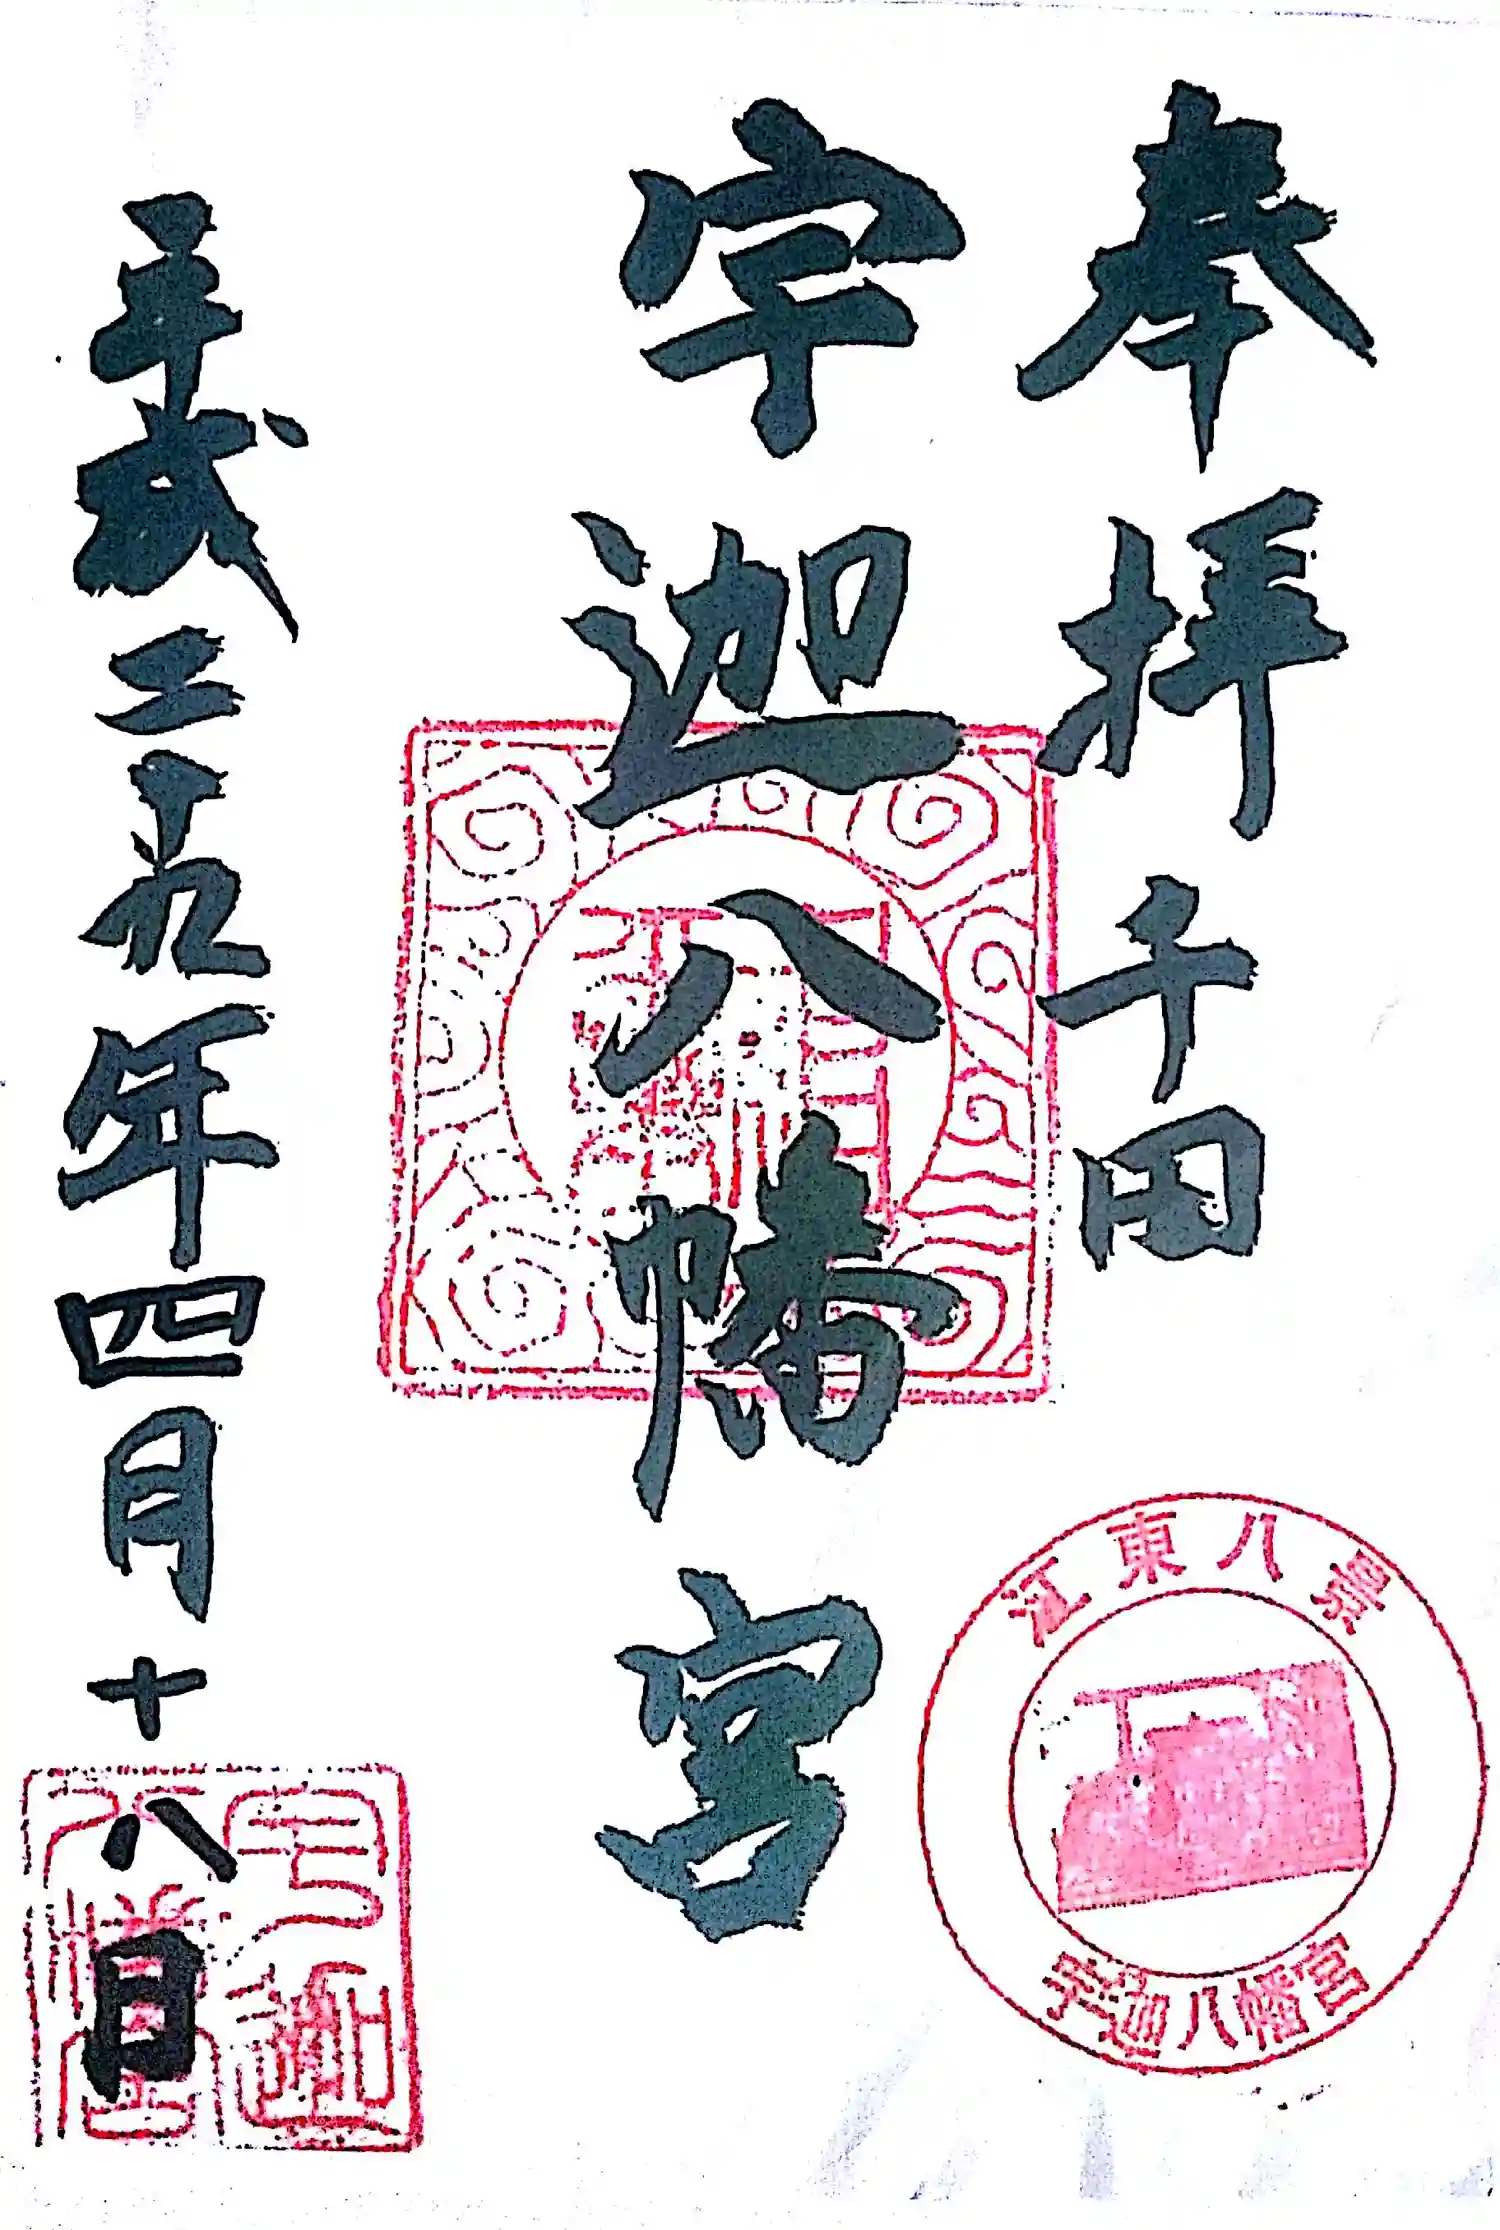 奉拝 千田
宇迦八幡宮
平成二十九年四月十八日
江東八景
宇迦八幡宮
宇迦
八幡宮